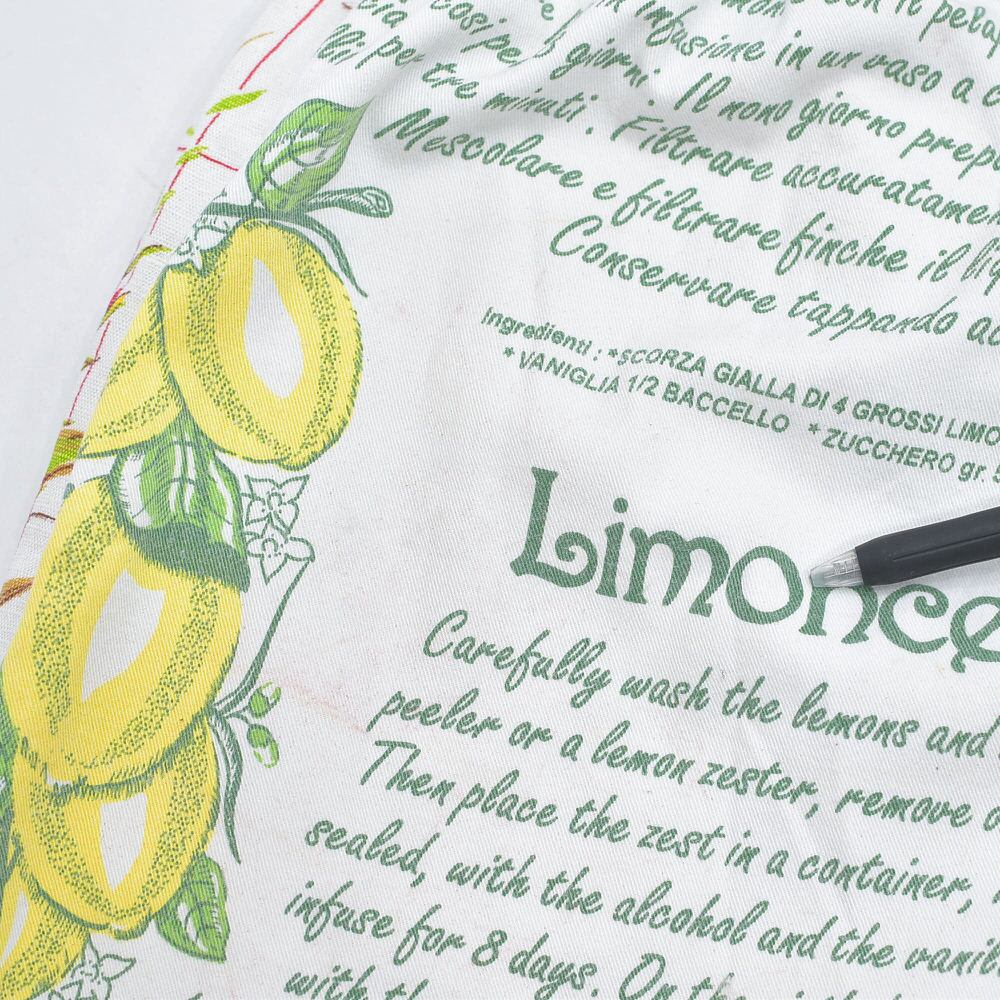 con il pelap
infusione in un vaso a c
così per 8 giorni. Il nono giorno prep
per tre minuti. Filtrare accuratamen
Mescolare e filtrare finche il liq
Conservare tappando
Ingredienti : *SCORZA GIALLA DI 4 GROSSI LIMO
* VANIGLIA 1/2 BACCELLO * ZUCCHERO gr. 5
Limonce
Carefully wash the lemons and
peeler or a lemon zester, remove
Then place the zest in a container,
sealed, with the alcohol and the vanil
infuse for 8 days. On the
with